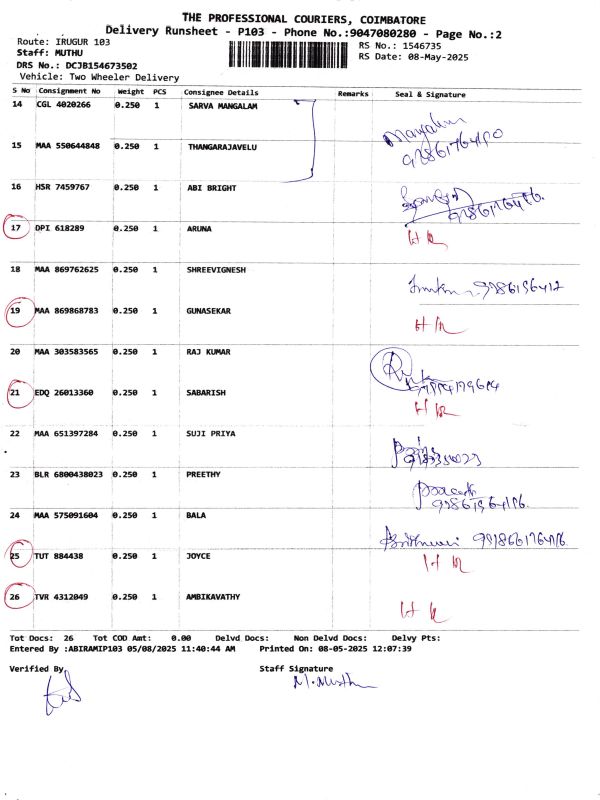 THE PROFESSIONAL COURIERS, COIMBATORE
Delivery Runsheet - P103 - Phone No.:9047080280 - Page No.:2
Route: IRUGUR 103 RS No.: 1546735
Staff: MUTHU RS Date: 08-May-2025
DRS No.: DCJB154673502
Vehicle: Two Wheeler Delivery
S No Consignment No Weight PCS Consignee Details Remarks Seal & Signature
14 CGL 4020266 0.250 1 SARVA MANGALAM
15 MAA 550644848 0.250 1 THANGARAJAVELU
16 HSR 7459767 0.250 1 ABI BRIGHT
17 DPI 618289 0.250 1 ARUNA
18 MAA 869762625 0.250 1 SHREEVIGNESH
19 MAA 869868783 0.250 1 GUNASEKAR
20 MAA 303583565 0.250 1 RAJ KUMAR
21 EDQ 26013360 0.250 1 SABARISH
22 MAA 651397284 0.250 1 SUJI PRIYA
23 BLR 6800438023 0.250 1 PREETHY
24 MAA 575091604 0.250 1 BALA
25 TUT 884438 0.250 1 JOYCE
26 TVR 4312049 0.250 1 AMBIKAVATHY
Tot Docs: 26 Tot COD Amt: 0.00 Delvd Docs: Non Delvd Docs: Delvy Pts:
Entered By :ABIRAMIP103 05/08/2025 11:40:44 AM Printed On: 08-05-2025 12:07:39
Verified By Staff Signature
M. Muthu